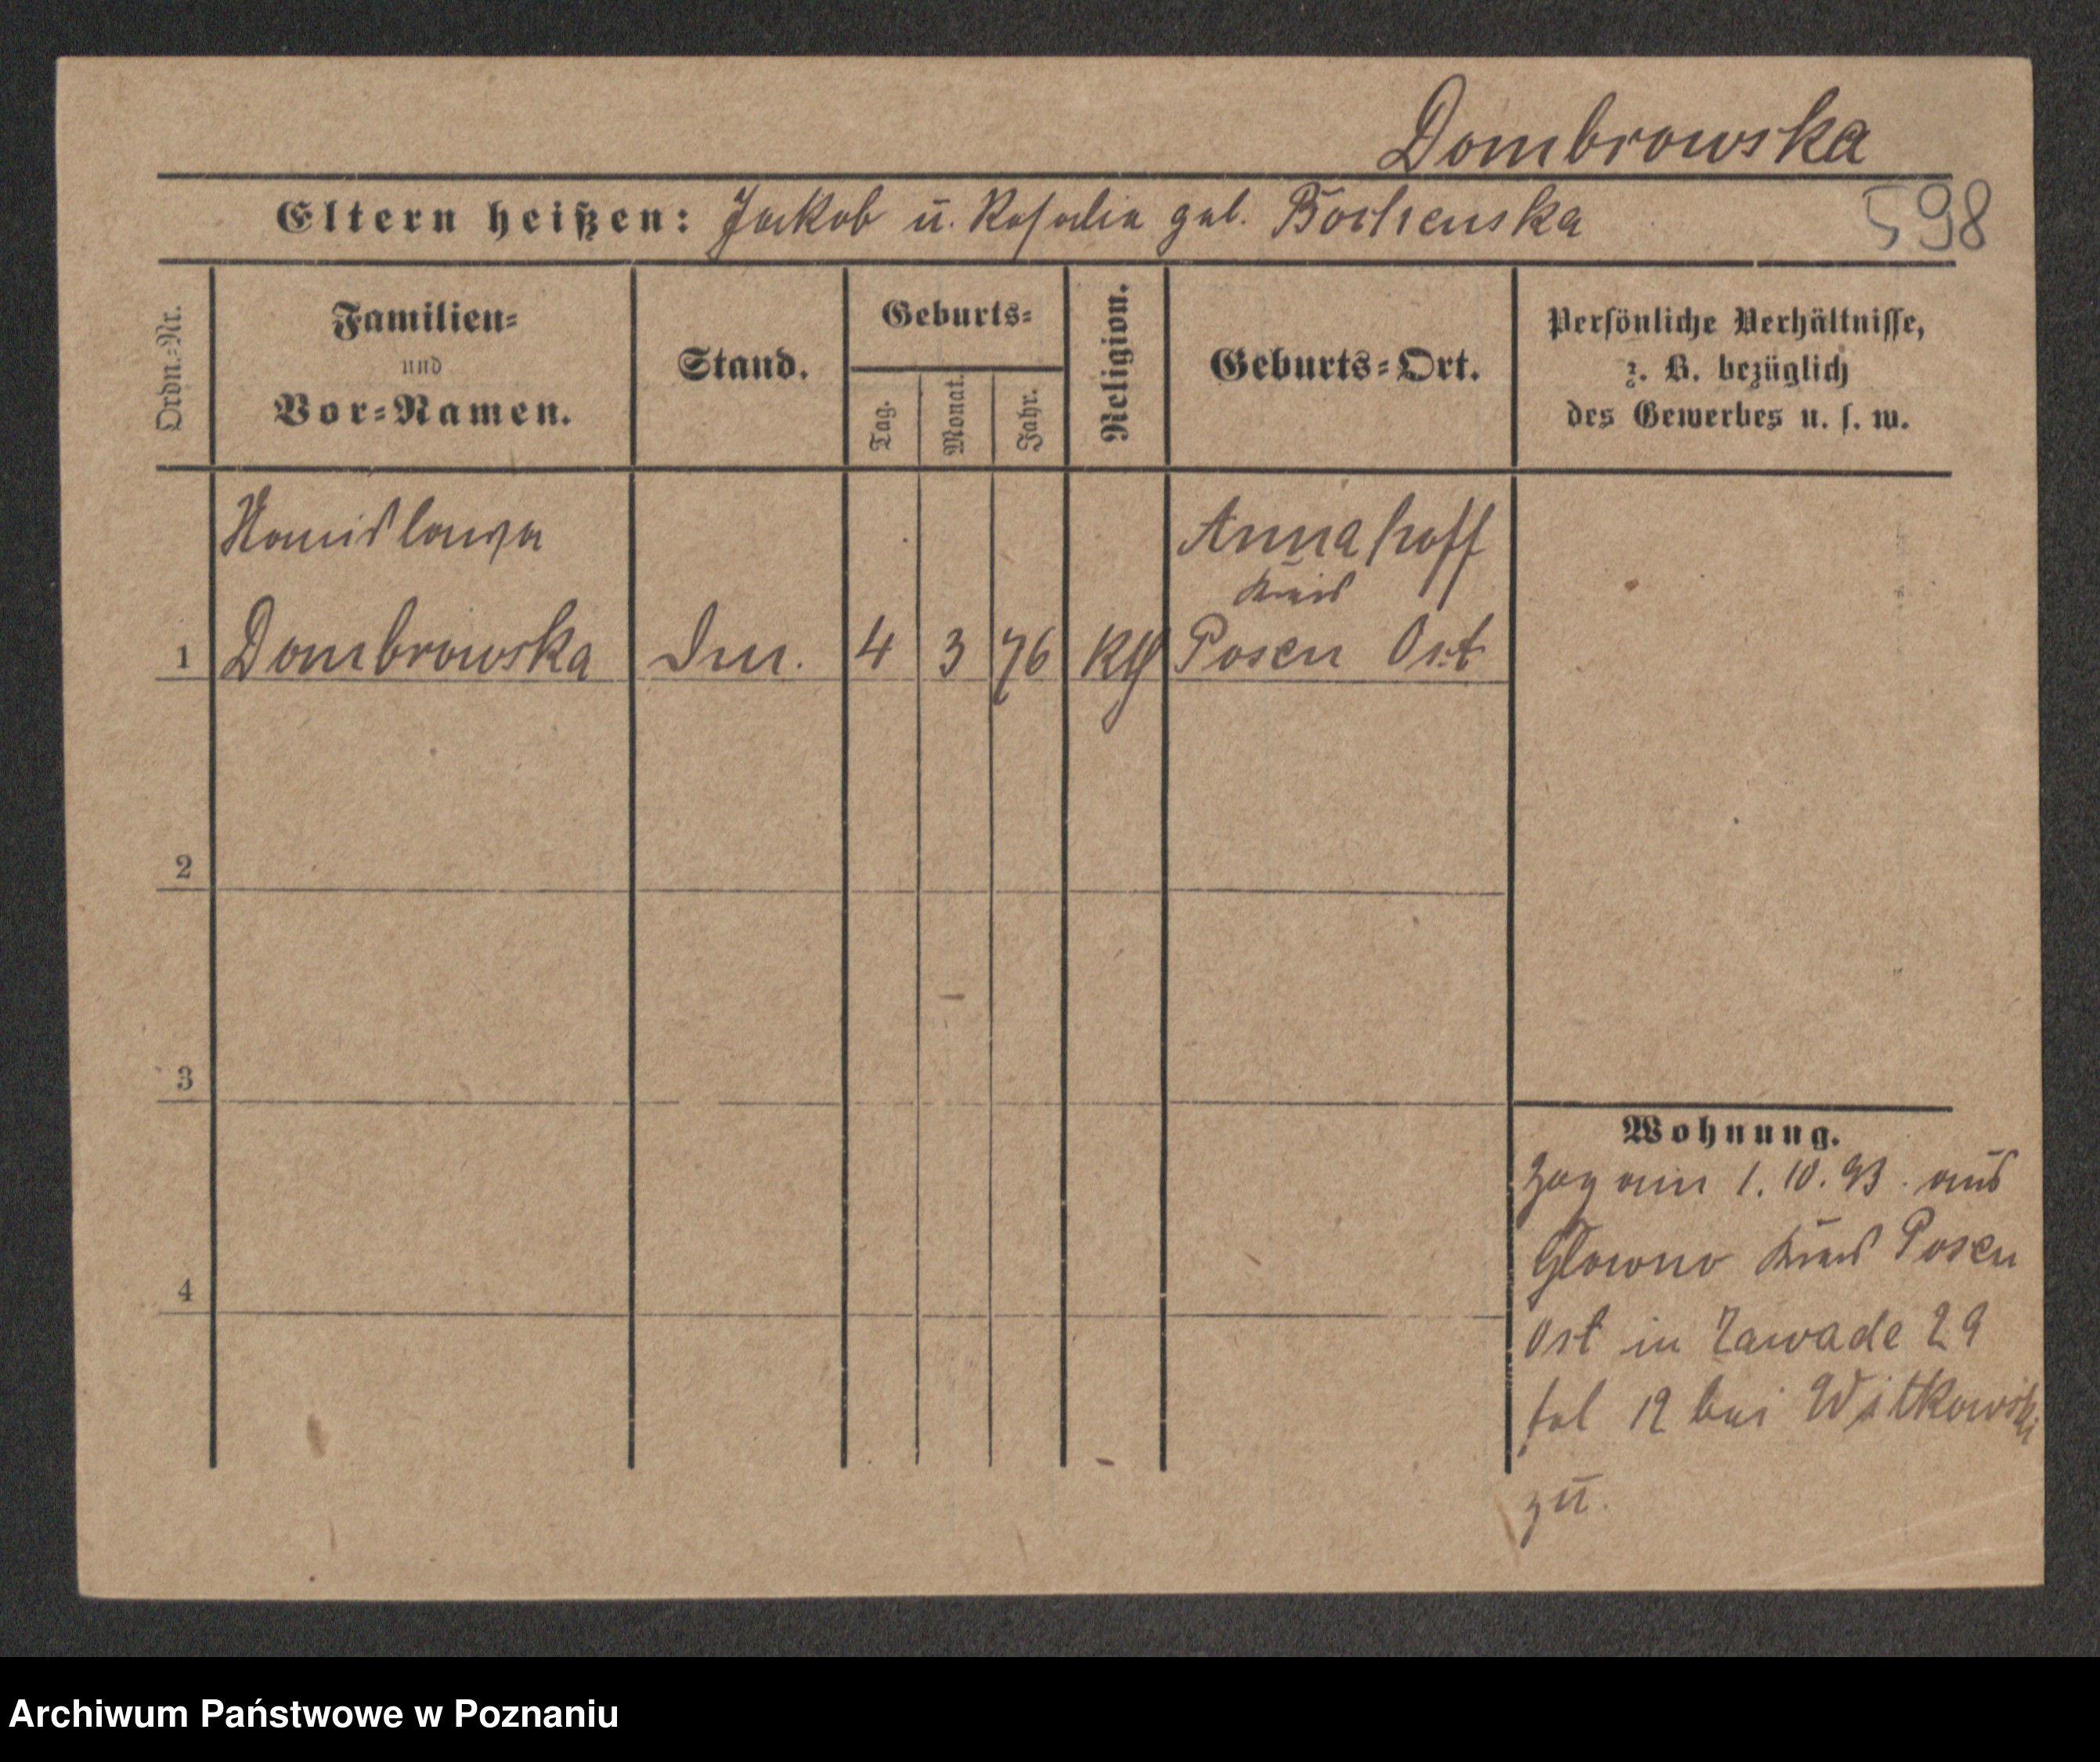 Dombrowska
Eltern heißen: Jakob u. Rosalia geb. Bochenska
598
Ordn.-Nr.
Familien-
und
Vor-Namen.
Stand.
Geburts-
Tag.
Monat.
Jahr.
Religion.
Geburts-Ort.
Persönliche Verhältnisse,
z. B. bezüglich
des Gewerbes u. s. w.
Stanislawa
Annahoff
Kreis
1 Dombrowska 4 3 76 Kth Posen Ost
2
3
4
Wohnung.
Zog am 1. 10. 93. aus
Glowno Kreis Posen
Ost in Zawade 29
12 bei Witkowski
zu.
Archiwum Państwowe w Poznaniu